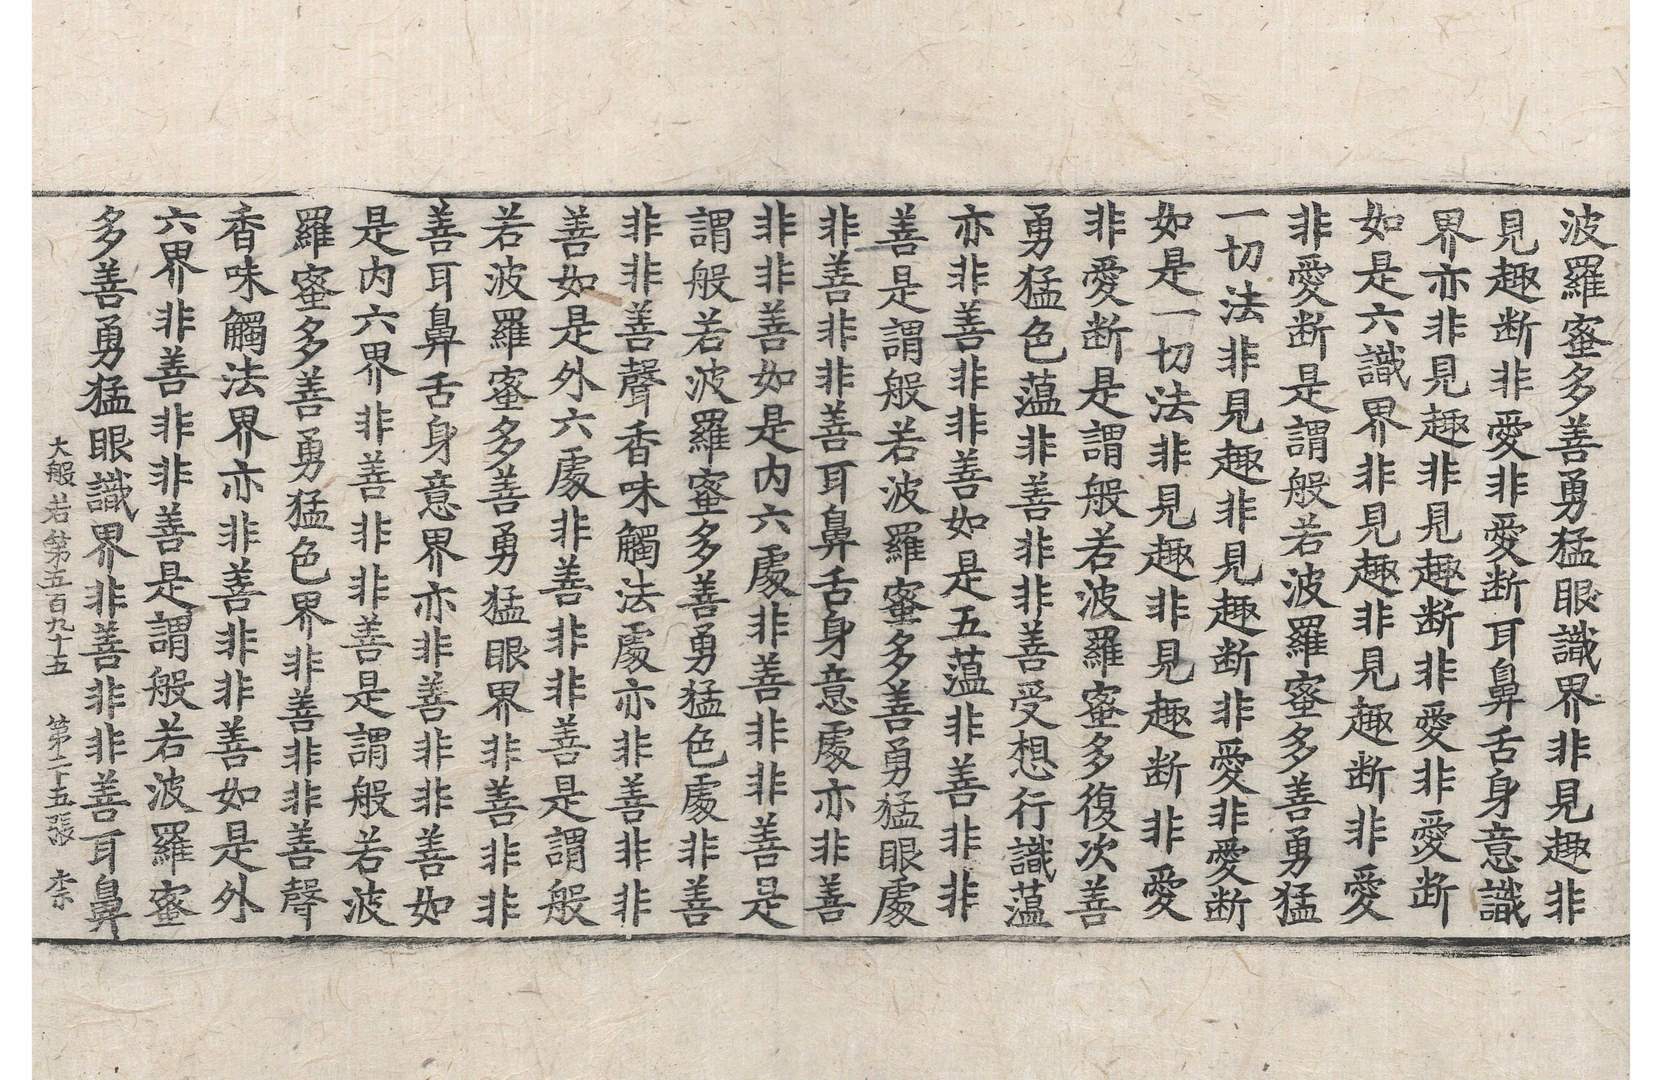 波羅蜜多善勇猛眼識界非見趣非
見趣断非愛非愛断耳鼻舌身意識
界亦非見趣非見趣断非愛非愛断
如是六識界非見趣非見趣断非愛
非愛断是謂般若波羅蜜多善勇猛
一切法非見趣非見趣断非愛非愛断
如是一切法非見趣非見趣断非愛
非愛断是謂般若波羅蜜多復次善
勇猛色薀非善非非善受想行識薀
亦非善非非善如是五薀非善非非
善是謂般若波羅蜜多善勇猛眼處
非善非非善耳鼻舌身意處亦非善
非非善如是内六處非善非非善是
謂般若波羅蜜多善勇猛色處非善
非非善聲香味觸法處亦非善非非
善如是外六處非善非非善是謂般
若波羅蜜多善勇猛眼界非善非非
善耳鼻舌身意界亦非善非非善如
是内六界非善非非善是謂般若波
羅蜜多善勇猛色界非善非非善聲
香味觸法界亦非善非非善如是外
六界非善非非善是謂般若波羅蜜
多善勇猛眼識界非善非非善耳鼻
大般若第五百九十五 第二十五張 柰